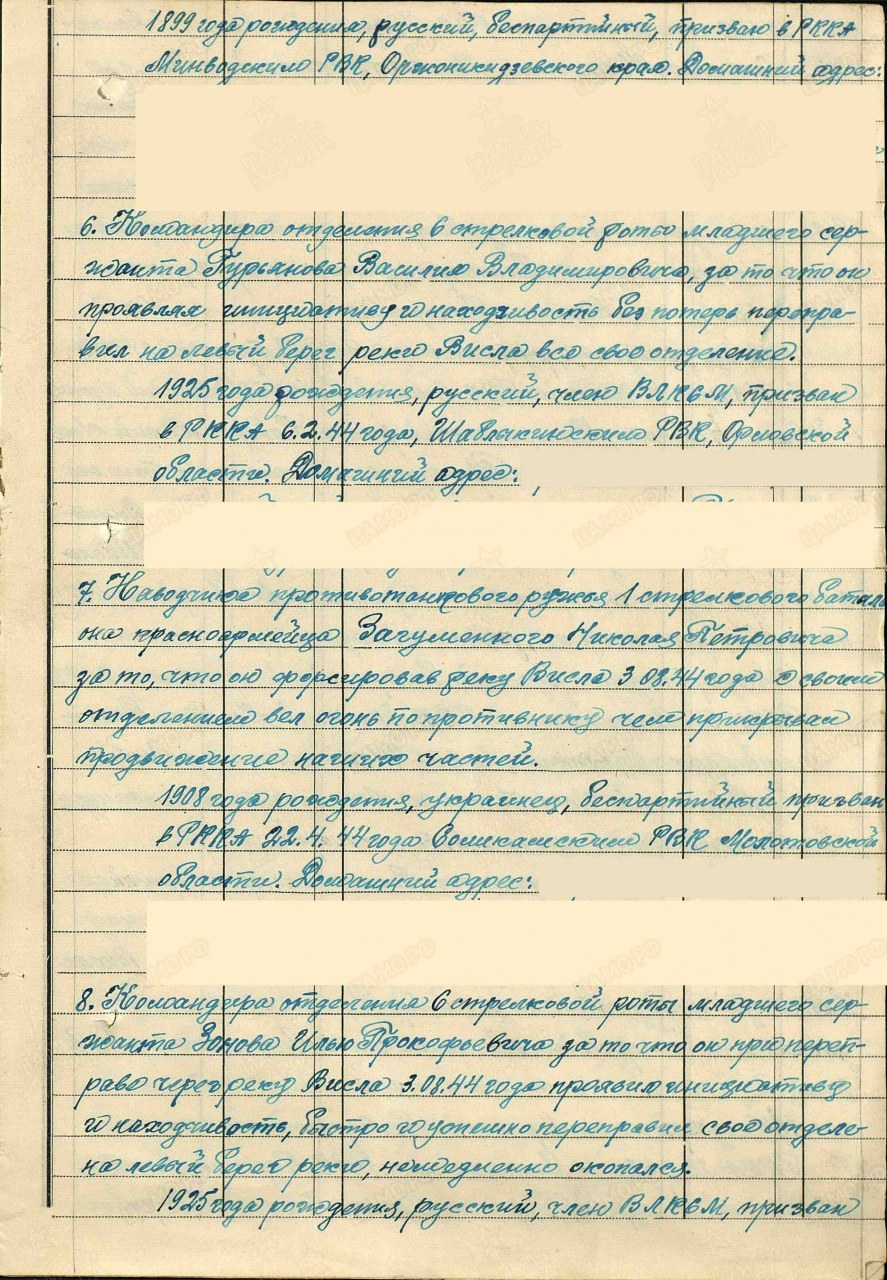 1899 года рождения, русский, беспартийный, призван в РККА
Минводским РВК, Орджоникидзевского края. Домашний адрес:
6. Командира отделения 6 стрелковой роты младшего сер-
жанта Гурьянова Василия Владимировича, за то что он
проявляя инициативу и находчивость без потерь перепра-
вил на левый берег реки Висла все свое отделение.
1925 года рождения, русский, член ВЛКСМ, призван
в РККА 6.2.44 года, Шаблыкинским РВК, Орловской
области. Домашний адрес:
7. Наводчика противотанкового ружья 1 стрелкового баталь
она красноармейца Загуменного Николая Петровича
за то, что он форсировав реку Висла 3.08.44 года с своим
отделением вел огонь по противнику чем прикрывал
продвижение наших частей.
1908 года рождения, украинец, беспартийный призван
в РККА 22.4.44 года Соликамским РВК Молотовской
области. Домашний адрес:
8. Командира отделения 6 стрелковой роты младшего сер-
жанта Зонова Илью Прокофьевича за то что он при переп-
раве через реку Висла 3.08.44 года проявил инициативу
и находчивость, быстро и успешно переправил свое отделе-
на левый берег реки, немедленно окопался.
1925 года рождения, русский, член ВЛКСМ, призван